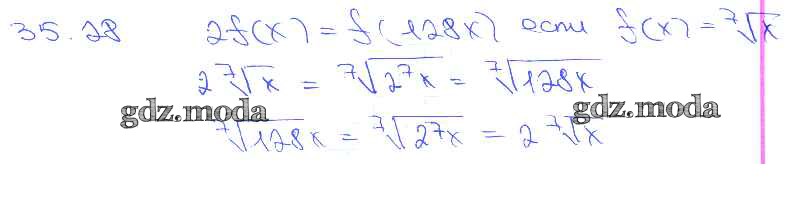 35.28 2f(x) = f(128x) если f(x) = ⁷√x
2 ⁷√x = ⁷√2⁷x = ⁷√128x
gdz.moda gdz.moda
⁷√128x = ⁷√2⁷x = 2 ⁷√x